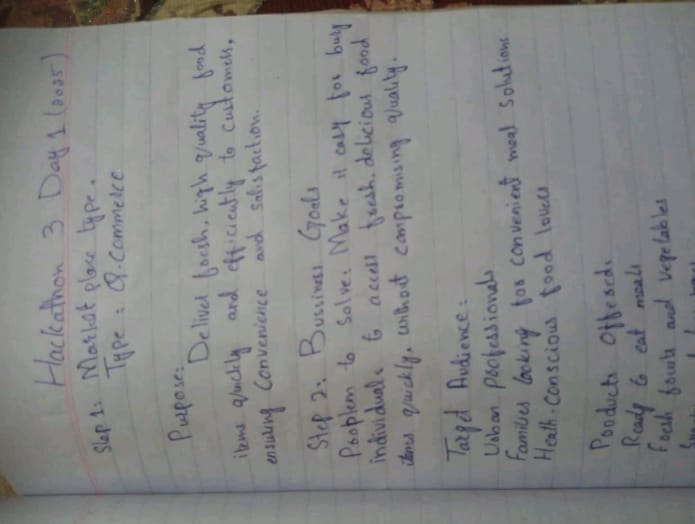 Hackathon 3 Day 1 (2025)
Step 1: Market place type.
Type: Q-Commerce
Purpose:
Deliver fresh, high quality food
items quickly and efficiently to customers,
ensuring convenience and satisfaction.
Step 2: Bussiness Goals
Problem to solve: Make it easy for busy
individuals to access fresh, delicious food
items quickly, without compromising quality.
Target Audience:
Urban professionals
Families looking for convenient meal solutions
Heath-conscious food lovers
Products Offered:
Ready to eat meals
Fresh fruits and vegetables